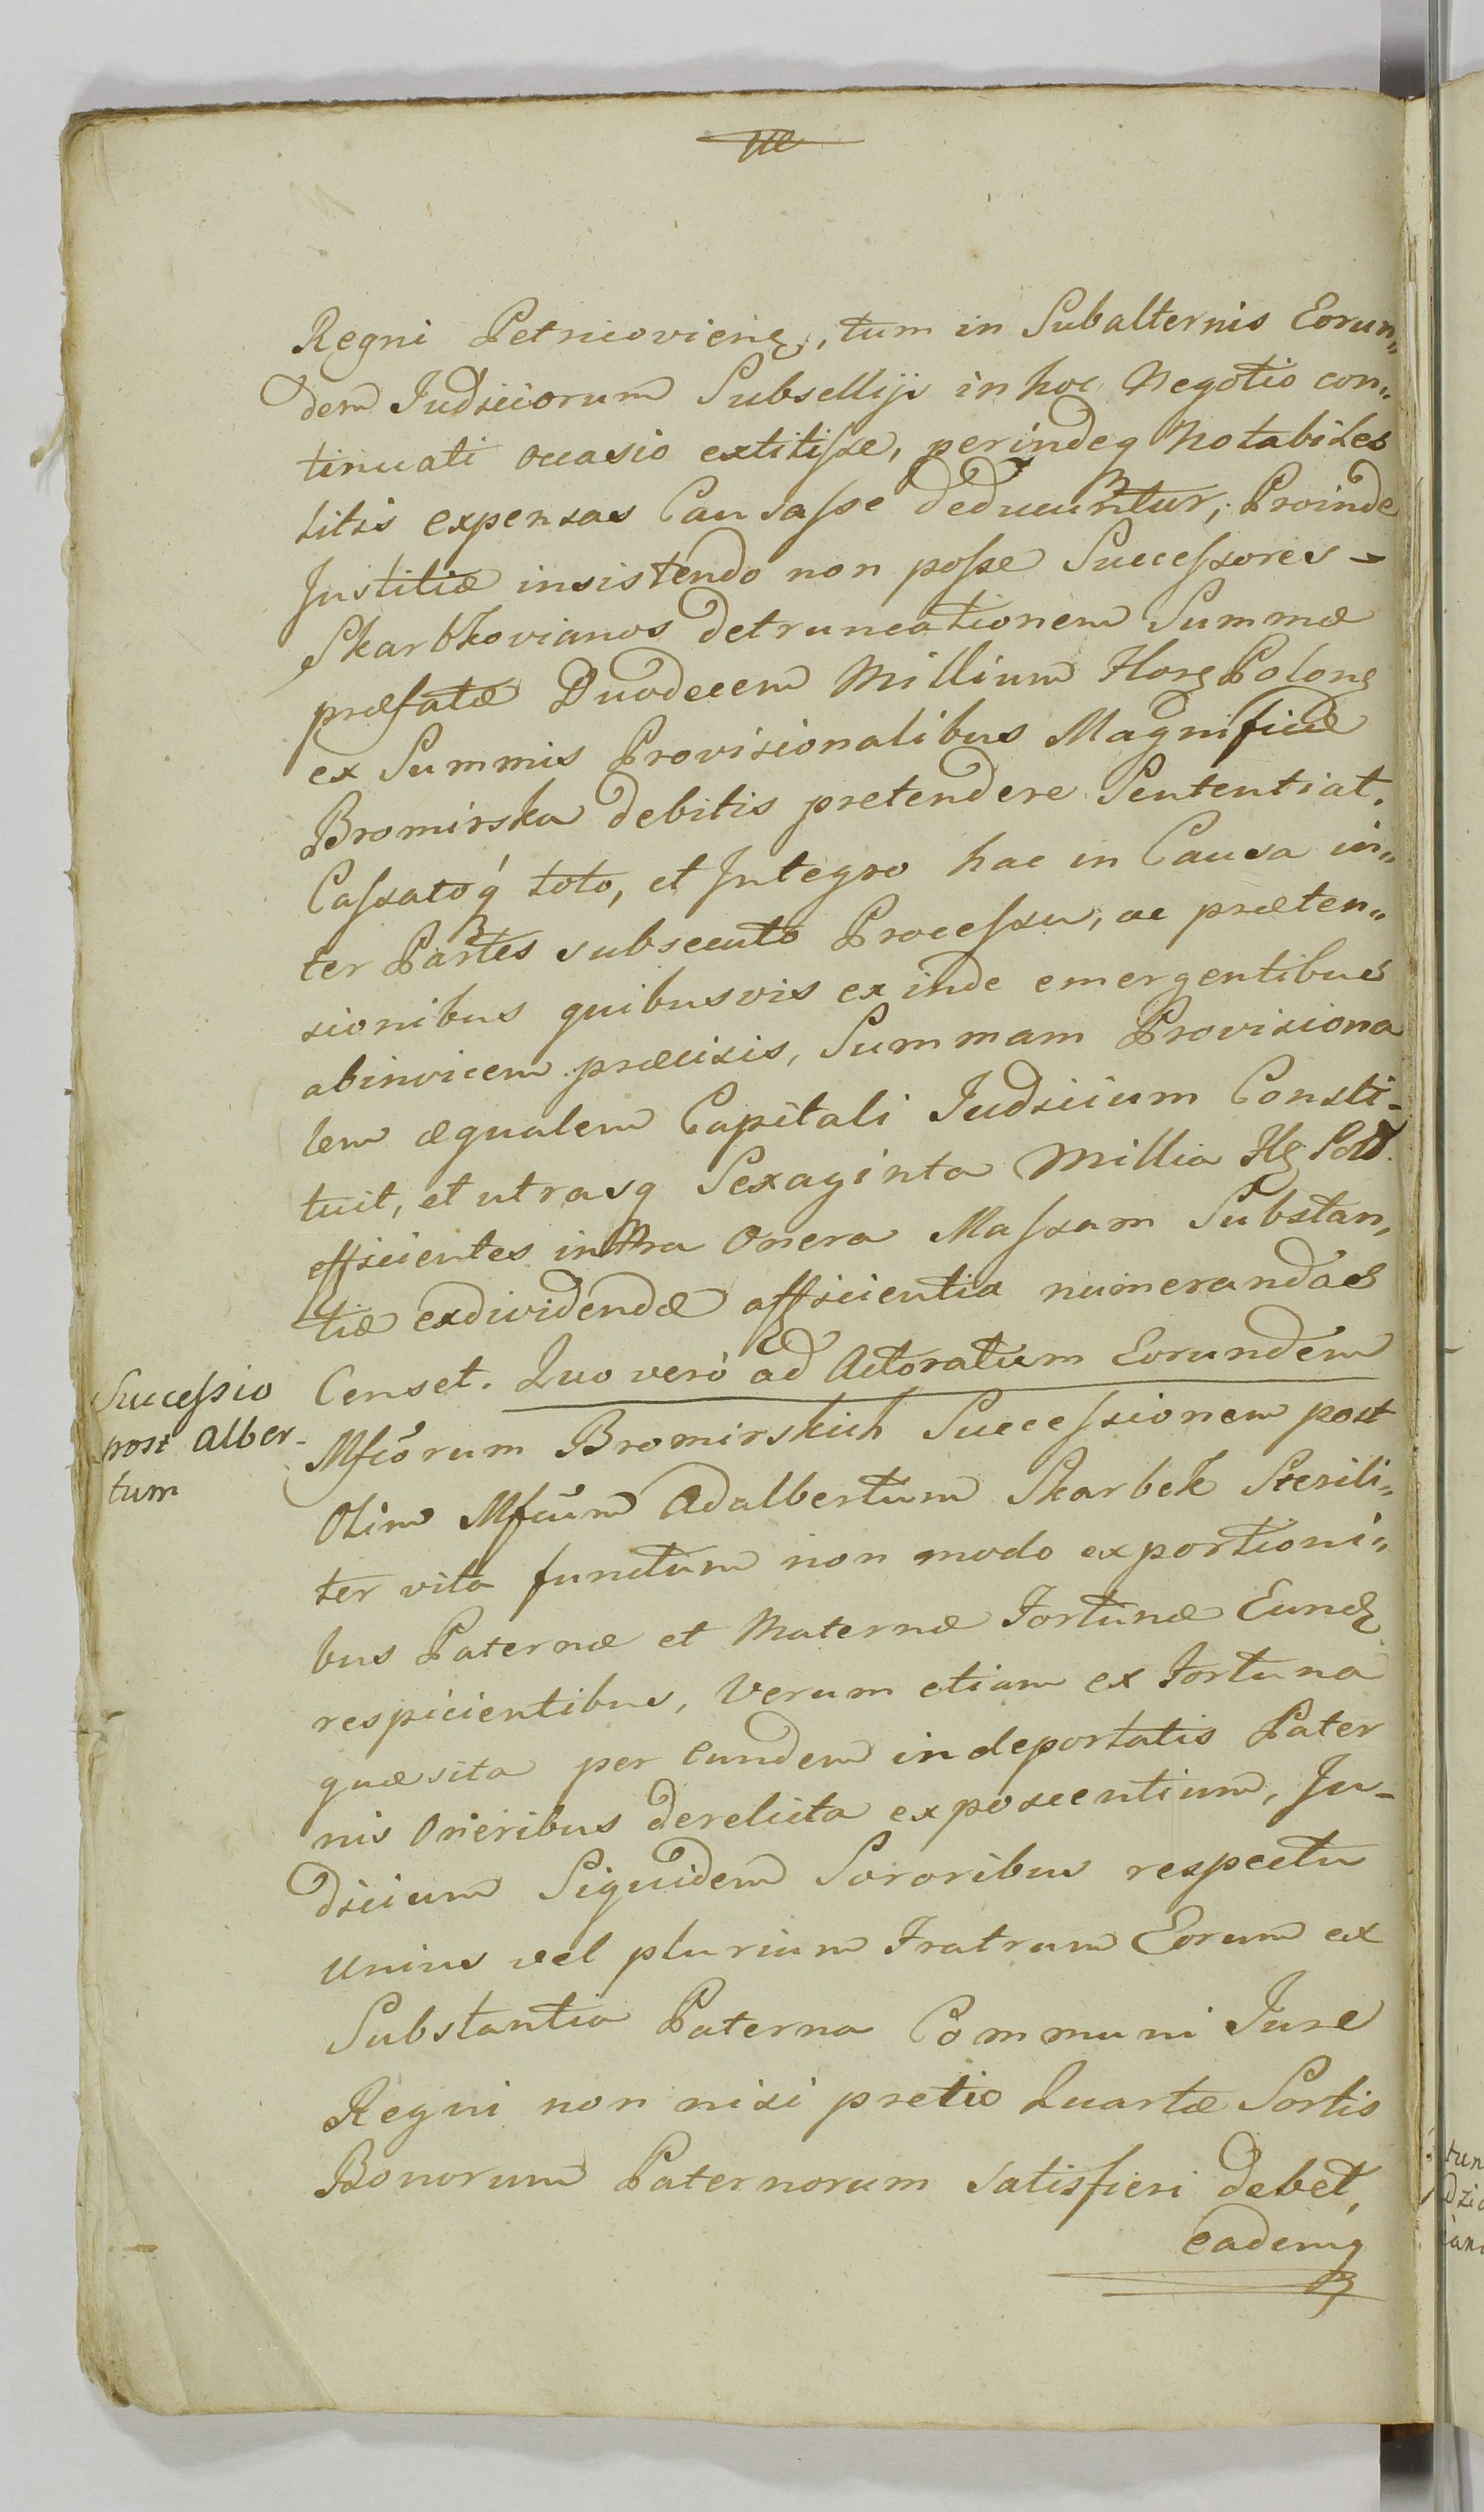 Regni Petricovieng, tum in Subalternis Eorun„
dem Judiciorum Subsellijs in hoc Negotio con„
tinuati occasio extitisse, perindeq Notabiles
litis expensas Causasse deducuntur, Proinde
Justitiæ insistendo non posse Successores –
Skarbkovianos detruncationem Summæ
præfatæ Duodecem Millium Florg Polong
ex Summis Provisionalibus Magnificæ
Bromirska debitis pretendere Sententiat.
Cassatoq́ toto, et Integro hac in Causa in„
ter Partes subsecuto Processu, ac præten„
sionibus quibusvis exinde emergentibus
abinvicem præcisis, Summam Provisiona
lem æqualem Capitali Judicium Consti-
tuit, et utrasq Sexaginta Millia Flg Poll.
efficientes intra Onera Massam Substan„
tiæ exdividendæ afficientia numerandas
Censet. Quo verò ad Actoratum Eorundem
Successio
post Alber-
tum
Mfcörum Bromirskich Successionem post
Olim Mfcum Adalbertum Skarbek Sterili„
ter vita functum non modo exportioni„
bus Paternæ et Maternæ Fortunæ Eundg
respicientibus, Verum etiam ex Fortuna
quæsita per Eundem indeportatis Pater
nis Oneribus derelicta exposcentium, Ju-
dicium Siquidem Sororibus respectu
unius vel plurium Fratrum Eorum ex
Substantia Paterna Communi Jure
Regni non nisi pretio Quartæ Sortis
Bonorum Paternorum satisfieri debet,
eademq